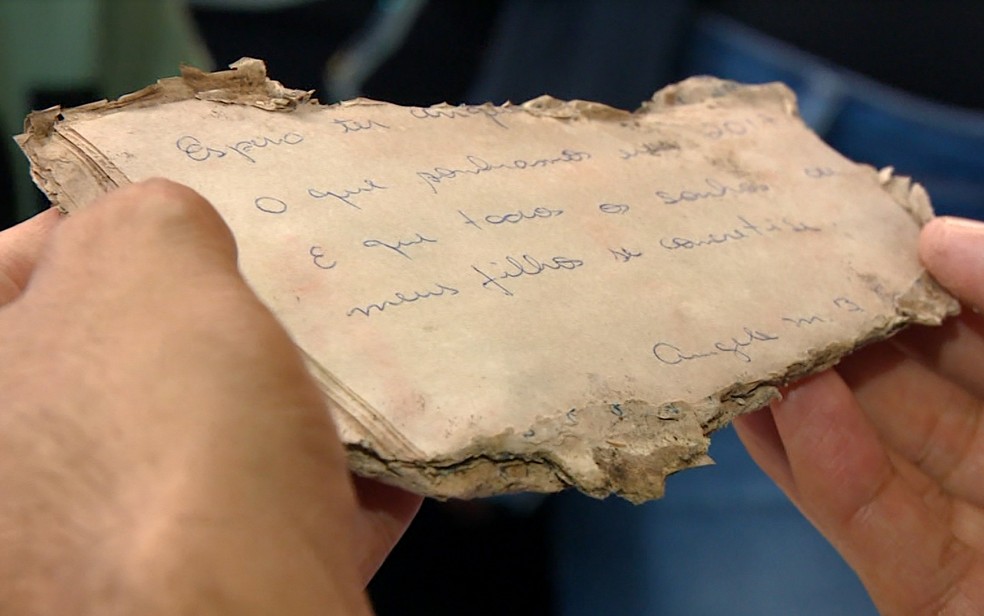 Espero ter
O que sonhamos
E que todos os sonhos
meus filhos se concretize
Angela M B